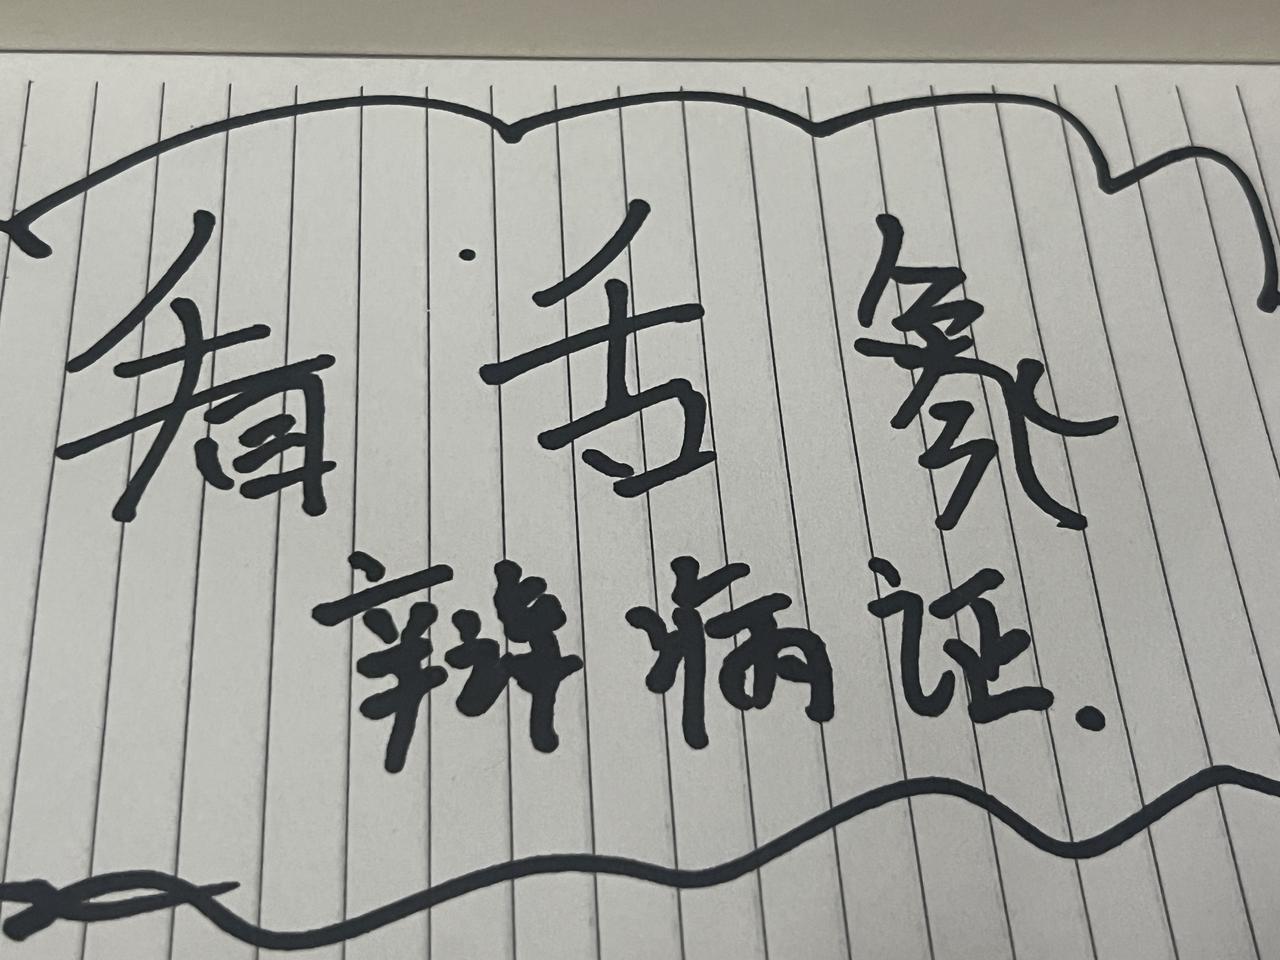 看舌象
辩病证.